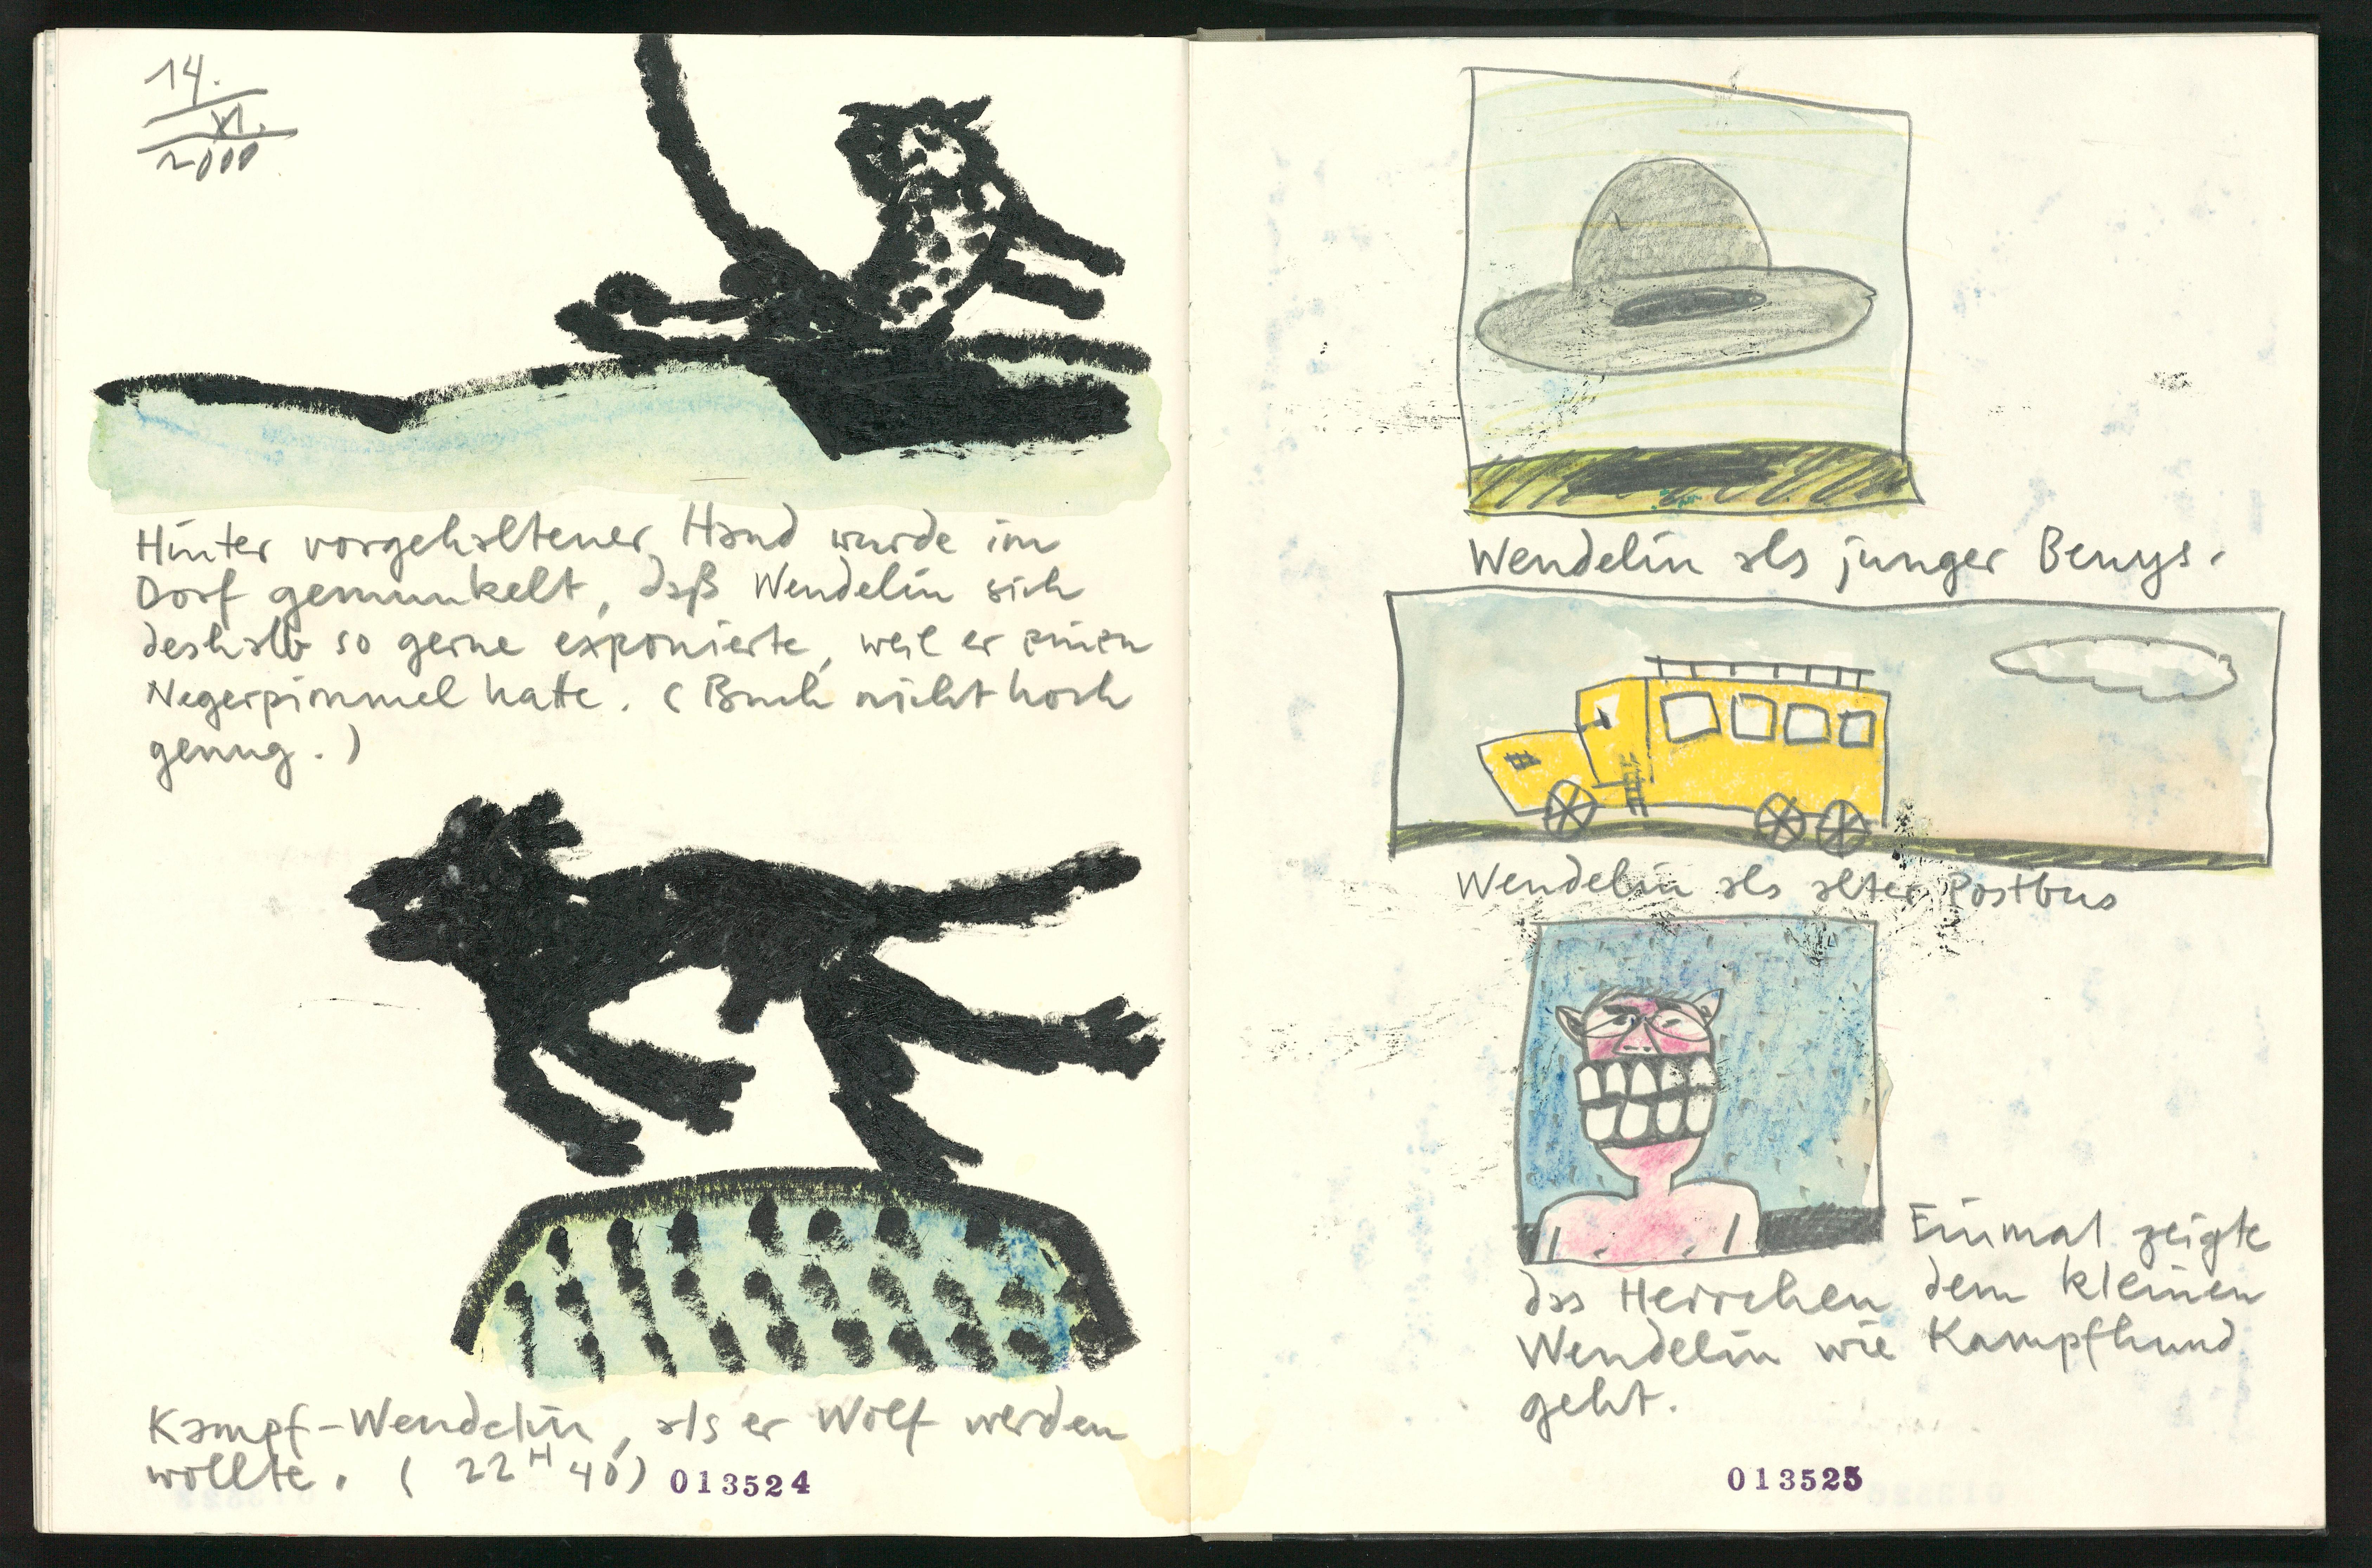 14.
XI.
2000
Hinter vorgehaltener Hand wurde im
Dorf gemunkelt, daß Wendelin sich
deshalb so gerne exponierte, weil er einen
Negerpimmel hatte. (Buch nicht hoch
genug.)
Kampf-Wendelin, als er Wolf werden
wollte. (22 H 40)
013524
Wendelin als junger Beuys.
Wendelin als alter Postbus
Einmal zeigte
das Herrchen dem kleinen
Wendelin wie Kampfhund
geht.
013525